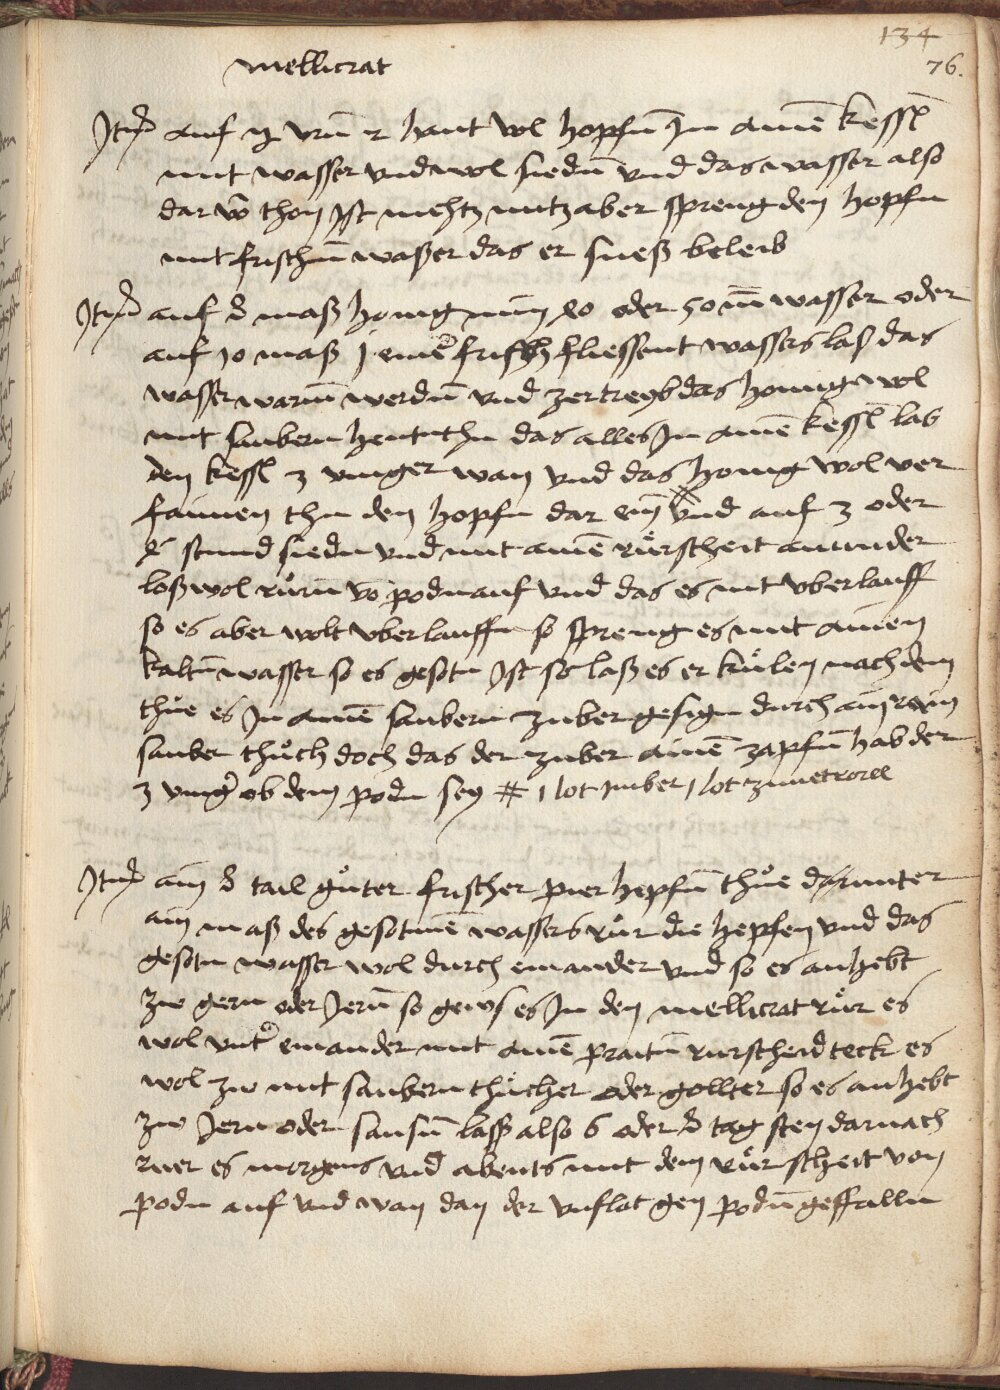 134
76.
mellicrat
Jtem auf ij vrñ 2 hant vol hopfñ Jn ainē kessl
mit wasser vnd wol siedñ vnd das wasser also
dar vō thon Jst nichtz nutz aber spreng den hopfn
mit frischñ wasser das er sueß beleib
Jtem auf maß honig nim 40 oder 50 m wasser oder
auf 10 maß j emē frisch fliessent wassers las das
wasser warm werdñ vnd zertreyb das honig wol
mit saubern hentthn das alles Jn ainē kessl las
den kessl 3 vinger wan vnd das honig wol ver
faimen thu den hopfn dar ein vnd auf 3 oder
4 stund siedn vnd mit ainē rürscheit an under
loß wol rürn vō podn auf vnd das es nit vberlauff
so es aber wolt vberlauffn so spreng es mit ainen
kaltñ wasser so es gesotn Jst so laß es er külen nach dem
thüe es Jn ainē saubern zuber gesign durch ain rain
sauber thüch doch das der zuber ainē zapfñ hab der
3 vinger ob dem podn sey # 1 lot imber 1 lot zimetrorll
Jtem ain tail güter frischer pier hepfñ thüe darunter
ain maß des gesotnē wassers rür die hepfen vnd das
gesotn wasser wol durch einander vnd so es anhebt
zw gern oder Jern so geuß es Jn den mellicrat rür es
wol vnter einander mit ainē praitñ rurscheid teck es
wol zw mit saubern thücher oder gollter so es anhebt
zw Jern oder sausñ lass also 6 oder 8 tag sten darnach
ruer es morgens vnd abents mit dem rür scheit von
podn auf vnd wan dan der vnflat gen podñ geffalln